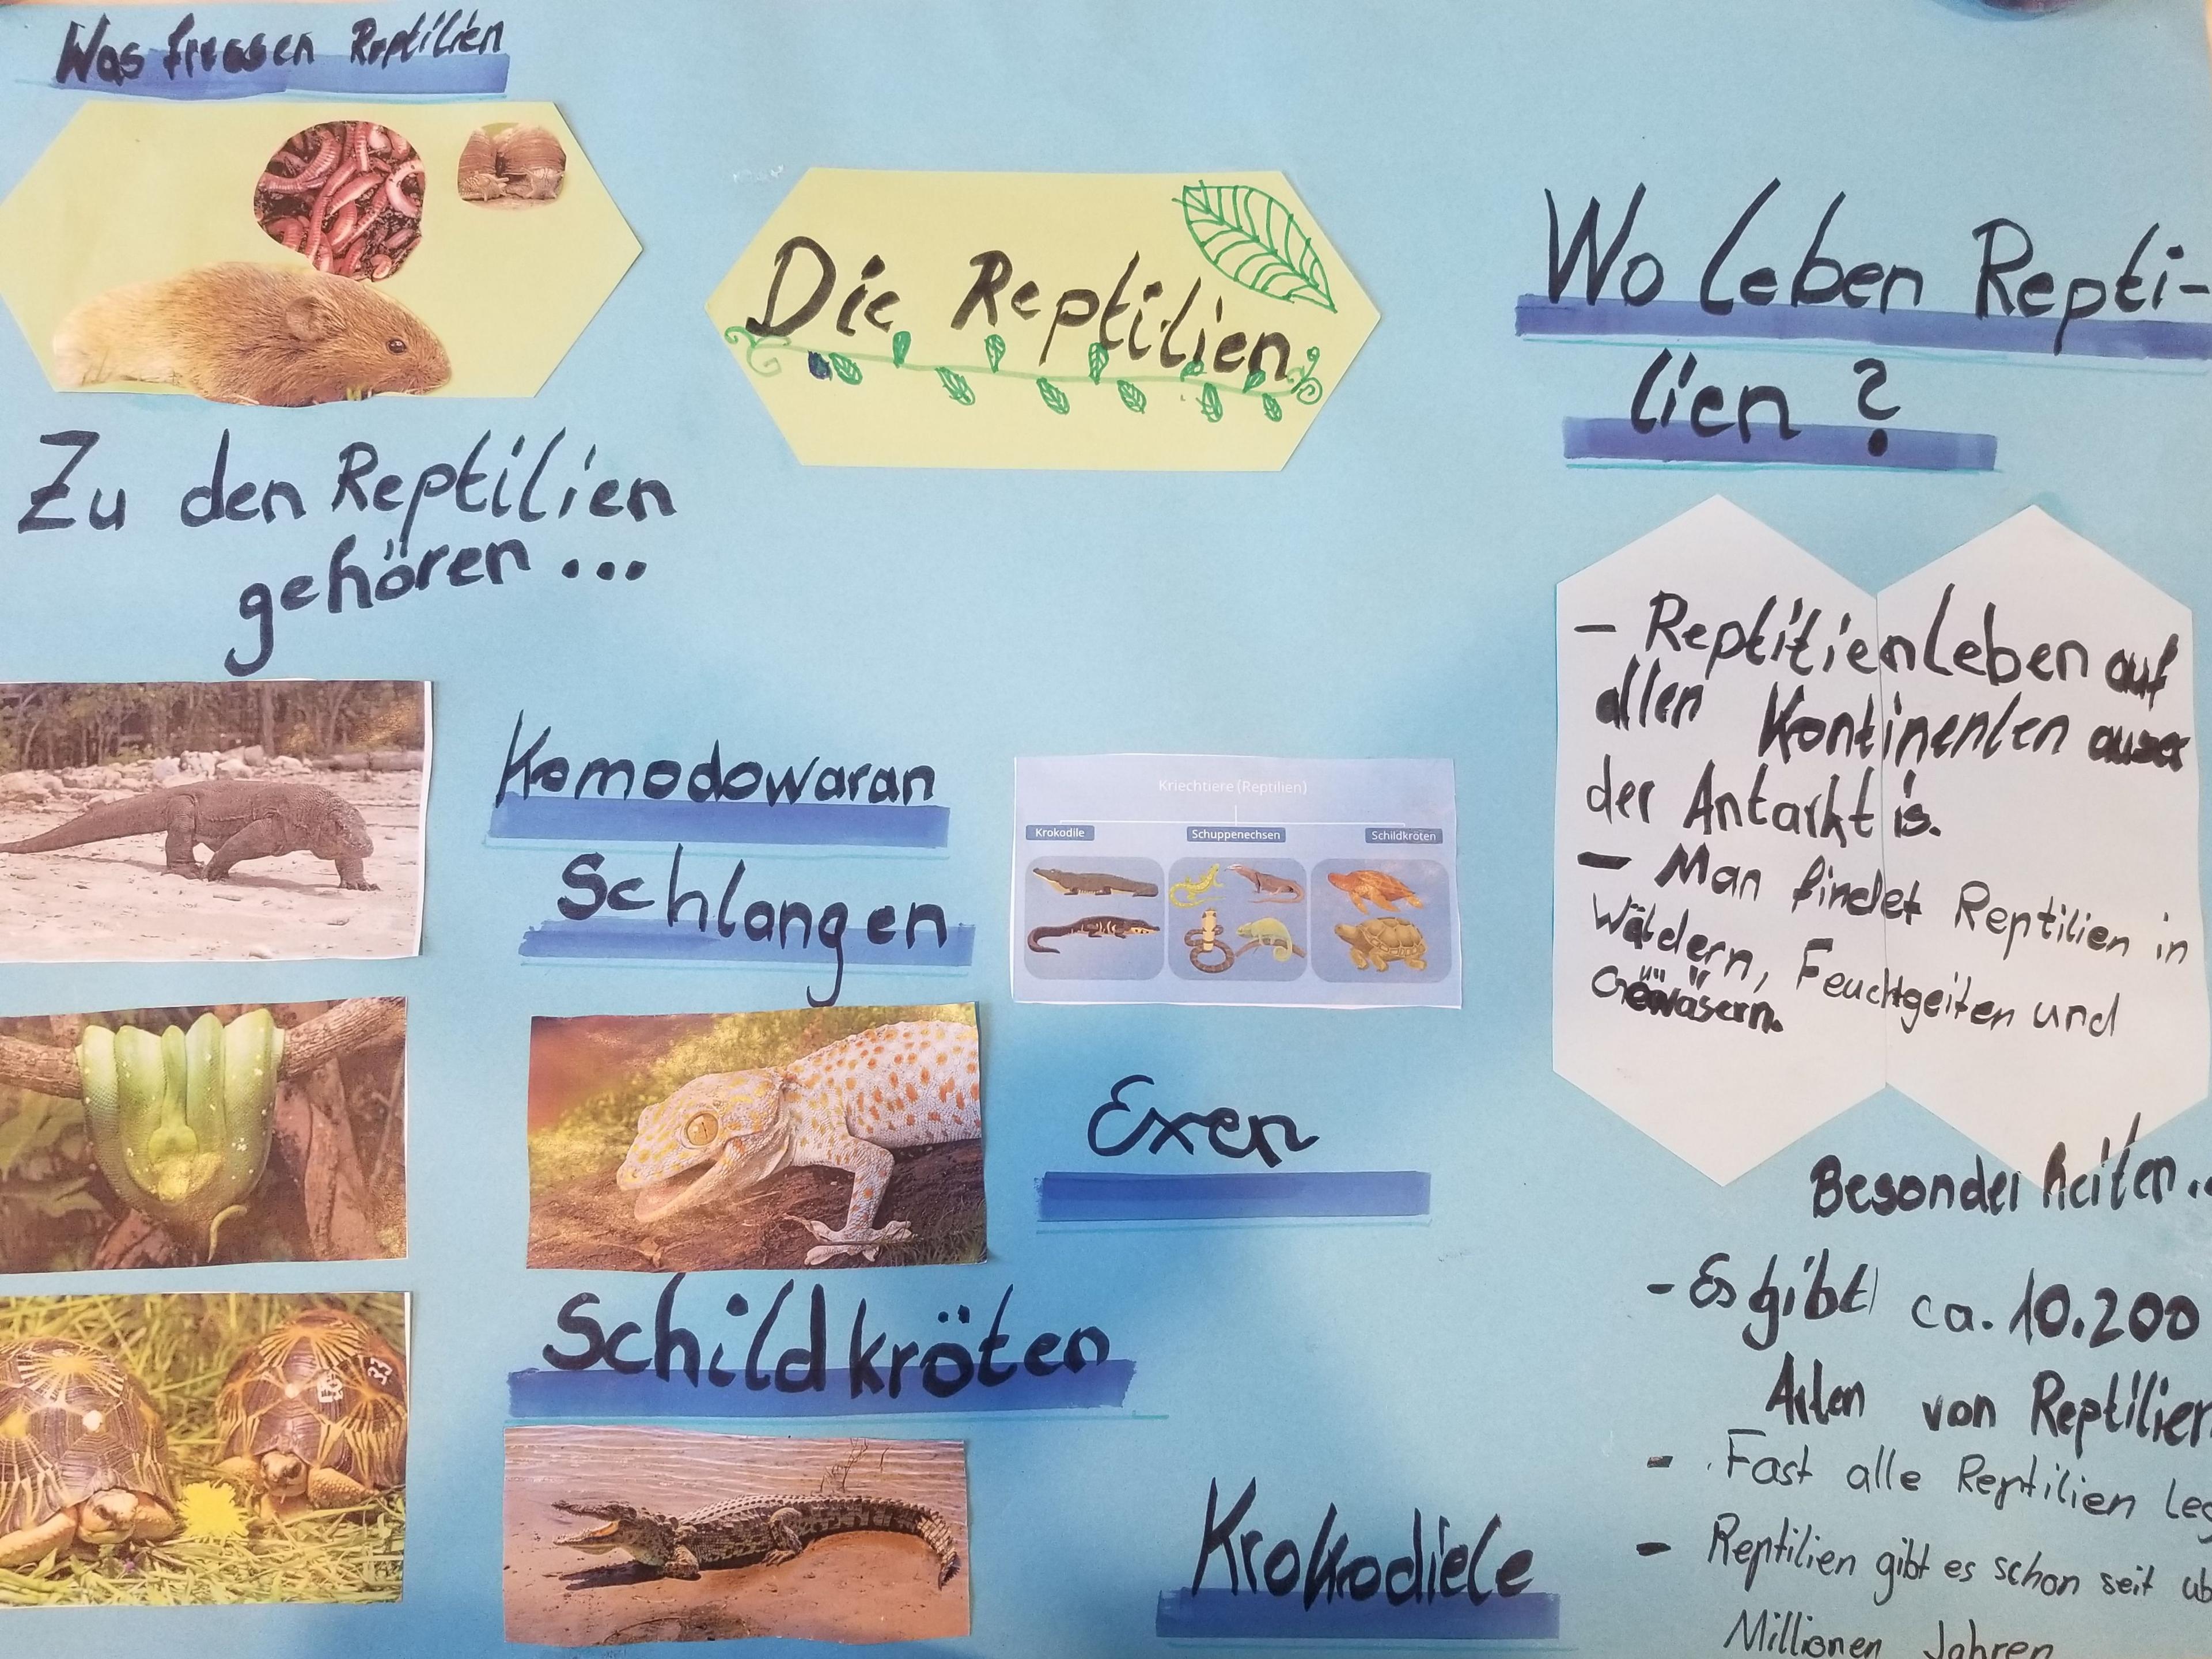 Was fressen Reptilien
Die Reptilien
Zu den Reptilien
gehören...
Komodowaran
Schlangen
Kriechtiere (Reptilien)
Krokodile
Schuppenechsen
Schildkröten
Exen
Schildkröten
Krokodiele
Wo leben Repti-
lien ?
- Reptitien leben auf
allen Kontinenten auser
der Antarktis.
- Man findet Reptilien in
Wäldern, Feuchtgeiten und
Gewäsern.
Besonderheiten..
- Es gibt ca. 10.200
Arten von Reptilien
- Fast alle Reptilien leg
- Reptilien gibt es schon seit üb
Millionen Jahren